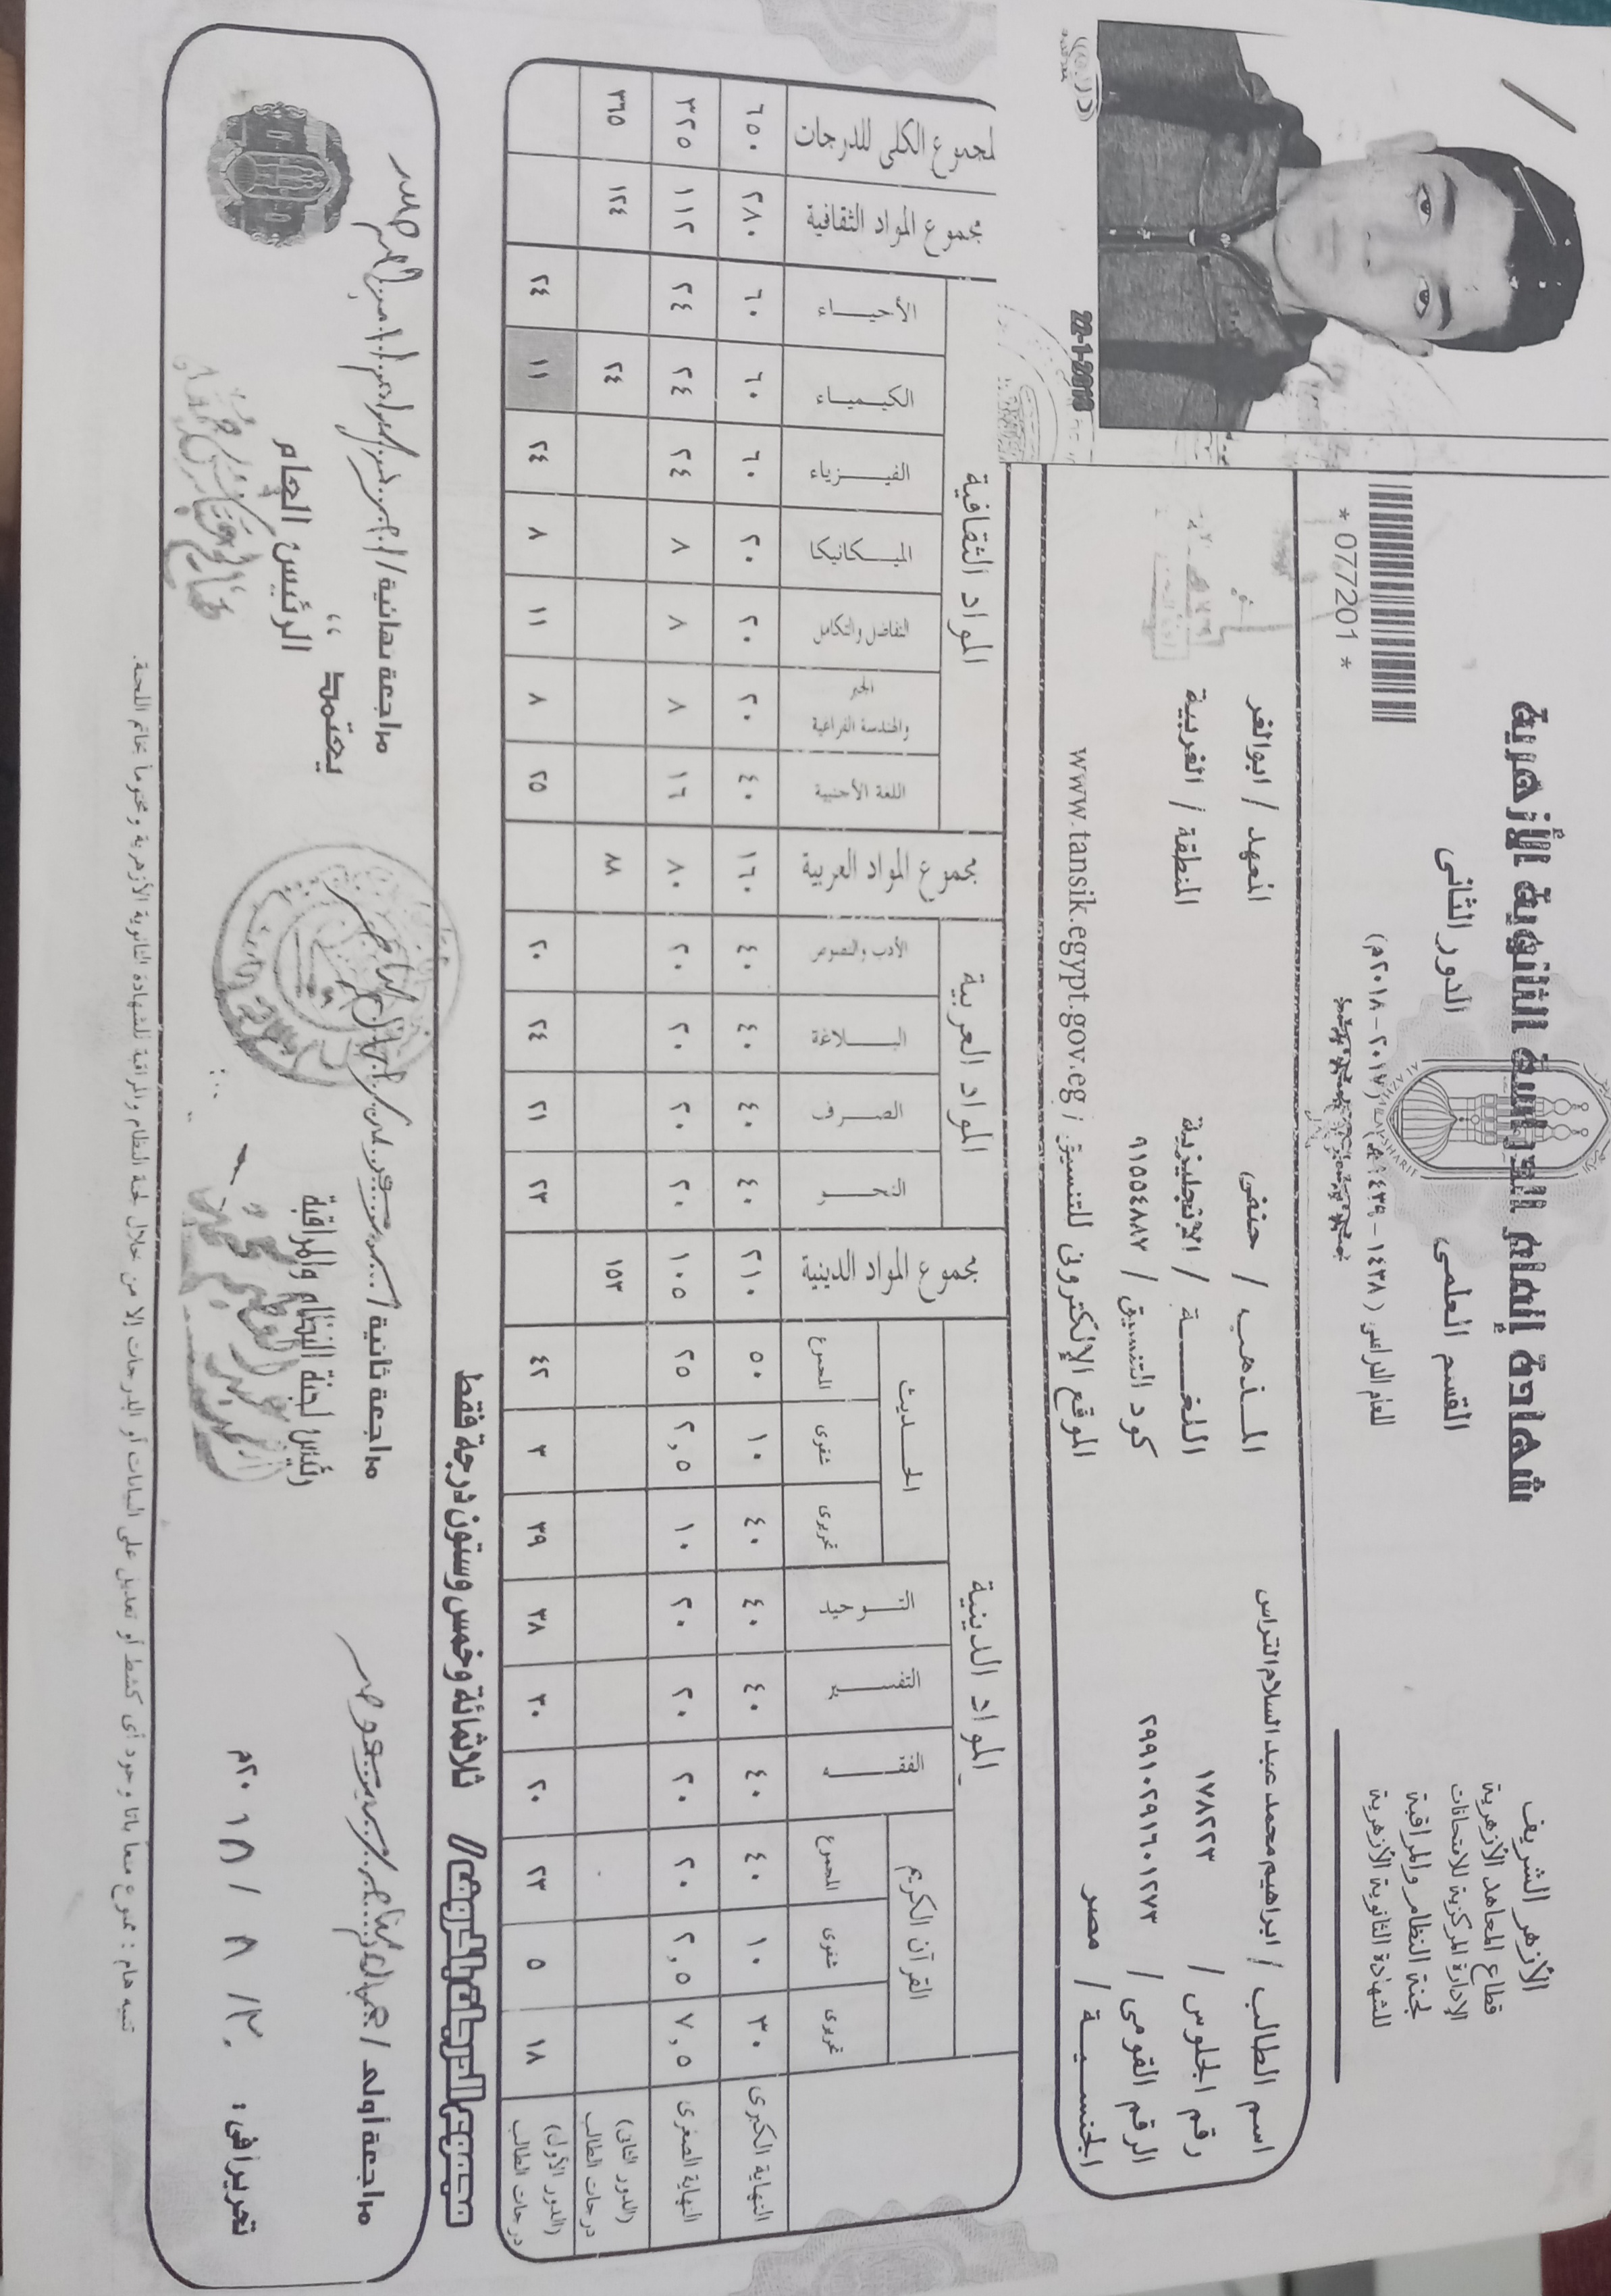 الأزهر الشريف
قطاع المعاهد الأزهرية
الإدارة المركزية للامتحانات
لجنة النظام والمراقبة
للشهادة الثانوية الأزهرية
شهادة إتمام الدراسة الثانوية الأزهرية
القسم العلمى الدور الثانى
للعام الدراسى ( ١٤٣٨ - ١٤٣٩هـ) (٢٠١٧ - ٢٠١٨م)
* 077201 *
22-1-2018
اسم الطالب / ابراهيم محمد عبد السلام التراس المـذهـب / حنفى المعهد / ابوالغر
رقم الجلوس / ١٧٨٢٢٣ اللغـــــة / الإنجليزية المنطقة / الغربية
الرقم القومى / ٢٩٩١٠٢٩١٦٠١٢٧٣ كود التنسيق / ٩١٥٥٤٨٨٧
الجنسـيـة / مصر الموقع الإلكترونى للتنسيق / www.tansik.egypt.gov.eg
المواد الدينية المواد العربية المواد الثقافية
القرآن الكريم الفقـــه التفسـير التـوحيد الحـديث مجموع المواد الدينية النحـو الصـرف البـلاغة الأدب والنصوص مجموع المواد العربية اللغة الأجنبية الجبر والهندسة الفراغية التفاضل والتكامل الميـكانيكا الفيـزياء الكيـمياء الأحيـاء مجموع المواد الثقافية المجموع الكلى للدرجات
تحريرى شفوى المجموع تحريرى شفوى المجموع
النهاية الكبرى ٣٠ ١٠ ٤٠ ٤٠ ٤٠ ٤٠ ٤٠ ١٠ ٥٠ ٢١٠ ٤٠ ٤٠ ٤٠ ٤٠ ١٦٠ ٤٠ ٢٠ ٢٠ ٢٠ ٦٠ ٦٠ ٦٠ ٢٨٠ ٦٥٠
النهاية الصغرى ٧,٥ ٢,٥ ٢٠ ٢٠ ٢٠ ٢٠ ١٠ ٢,٥ ٢٥ ١٠٥ ٢٠ ٢٠ ٢٠ ٢٠ ٨٠ ١٦ ٨ ٨ ٨ ٢٤ ٢٤ ٢٤ ١١٢ ٣٢٥
درجات الطالب (الدور الثانى) ١٥٣ ٨٨ ٢٤ ١٢٤ ٣٦٥
درجات الطالب (الدور الأول) ١٨ ٥ ٢٣ ٢٠ ٣٠ ٣٨ ٣٩ ٣ ٤٢ ٢٣ ٢١ ٢٤ ٢٠ ٢٥ ٨ ١١ ٨ ٢٤ ١١ ٢٤
مجموع الدرجات بالحروف // ثلاثمائة وخمس وستون درجة فقط
مراجعة أولى / مراجعة ثانية / مراجعة نهائية /
تحريرا فى : ٣٠ / ٨ / ٢٠١٨م رئيس لجنة النظام والمراقبة يعتمد ،،
الرئيس العام
تنبيه هام : ممنوع منعاً باتا وجود أى كشط أو تعديل على البيانات أو الدرجات إلا من خلال لجنة النظام والمراقبة للشهادة الثانوية الأزهرية ومختوماً بخاتم اللجنة.